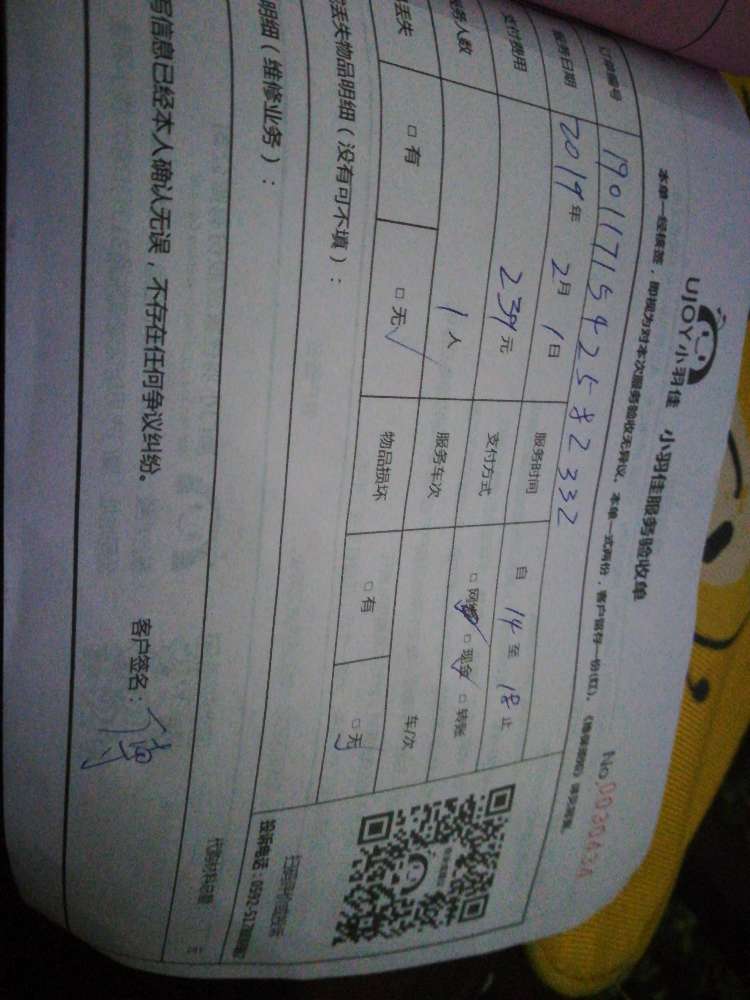 UJOY小羽佳 小羽佳服务验收单
No 0030434
本单一经核签，即视为对本次服务验收无异议。本单一式两份，客户留存一份(红)。
订单编号 190117154258 2332
服务日期 2019年 2月 1日 服务时间 自 14 至 18 止
支付费用 239元 支付方式 □网络 □现金 □转账
务人数 1人 服务车次 车/次
丢失 □有 □无 物品损坏 □有 □无
丢失物品明细（没有可不填）：
明细（维修业务）：
写信息已经本人确认无误，不存在任何争议纠纷。
客户签名：